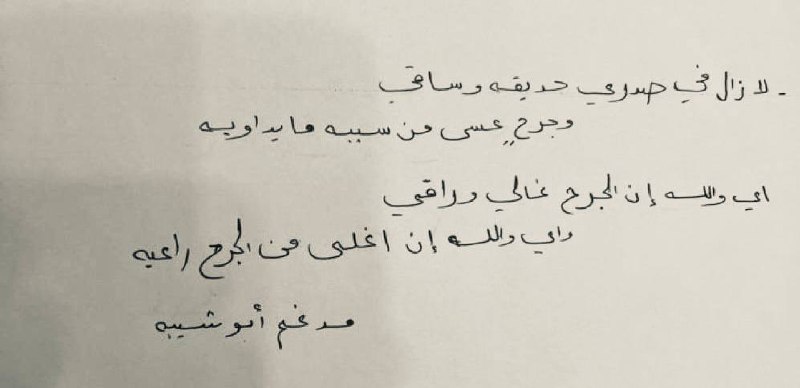 - لا زال في صدري حديقه وساقي
وجرحٍ عسى من سببه مايداويه
اي والله إن الجرح غالي وراقي
واي والله إن اغلى من الجرح راعيه
مدغم أبو شيبه